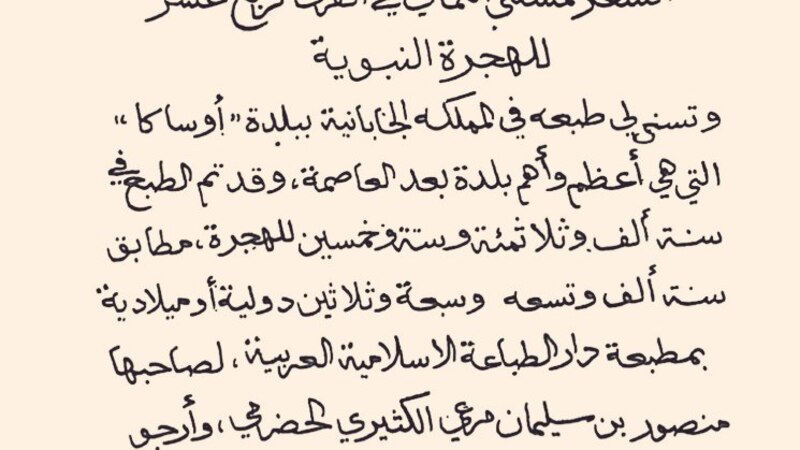 في القرن الرابع عشر
للهجرة النبوية
وتسنى لي طبعه في المملكه الجابانية ببلدة "أوساكا"
التي هي أعظم وأهم بلدة بعد العاصمة، وقد تم الطبع في
سنة ألف وثلاثمئة وستة وخمسين للهجرة، مطابق
سنة ألف وتسعه وسبعة وثلاثين دولية أو ميلادية
بمطبعة دار الطباعة الاسلامية العربية، لصاحبها
منصور بن سليمان مرعي الكثيري الحضرمي، وأرجو